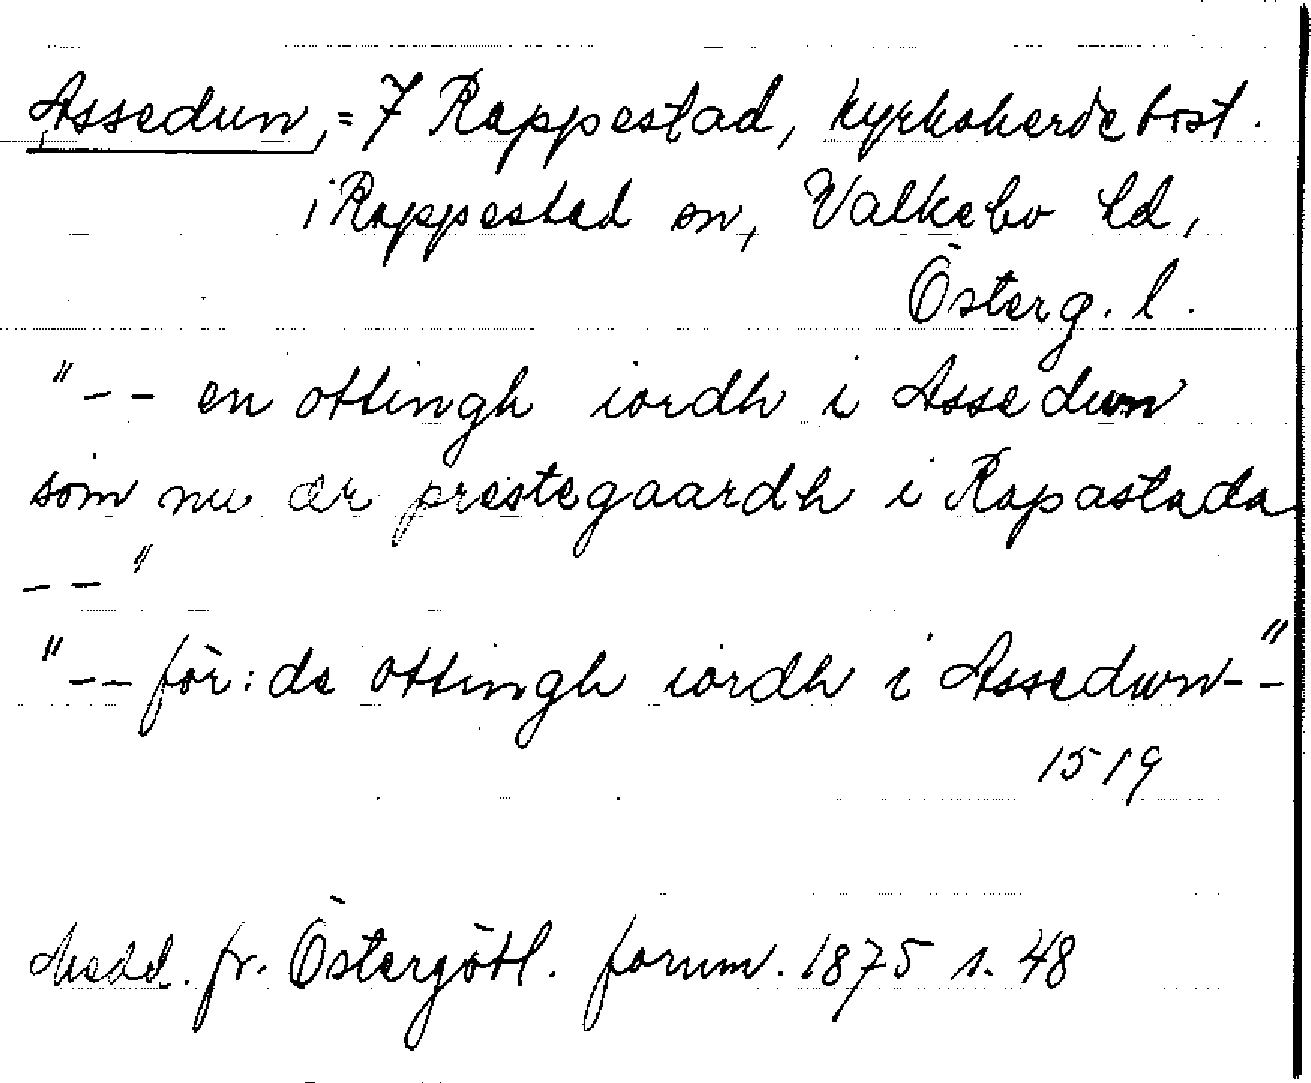 Assedun, = 7 Rappestad, kyrkoherdebost.
i Rappestad sn, Valkebo hd,
Österg. l.
"-- en ottingh iordh i Assedun
som nu är prestegaardh i Rapastada
--"
"-- för:de ottingh iordh i Assedun--"
1519
Medd. fr. Östergötl. fornm. 1875 s. 48